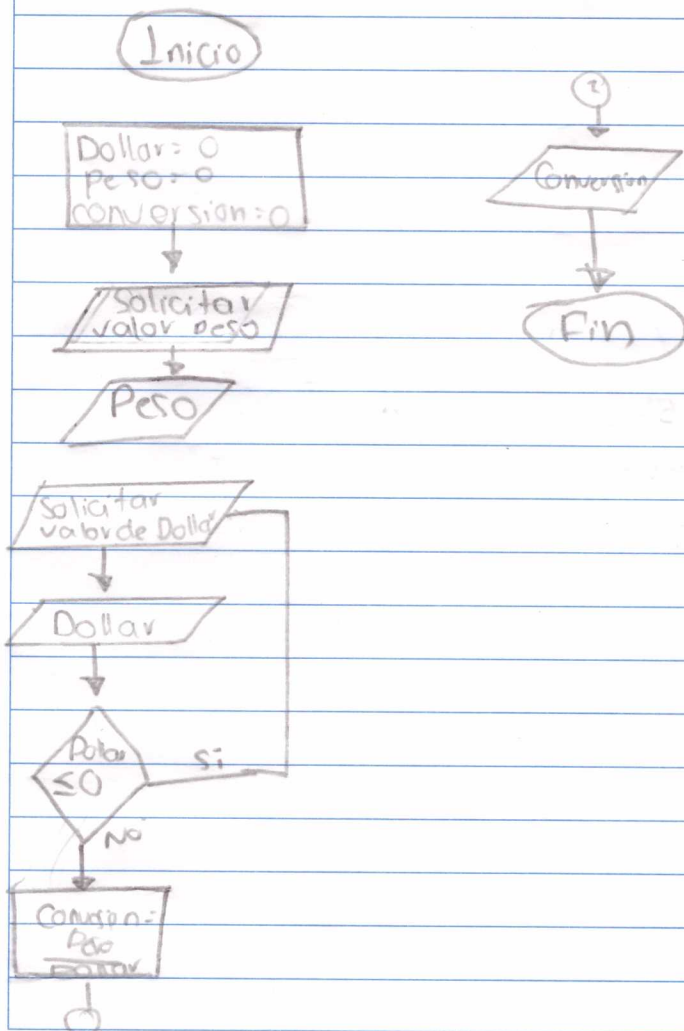 Inicio
Dollar = 0
Peso = 0
conversion = 0
Solicitar
valor peso
Peso
Solicitar
valor de Dollar
Dollar
Dollar
≤0
Si
No
=
Peso
Dollar
Conversion
Fin